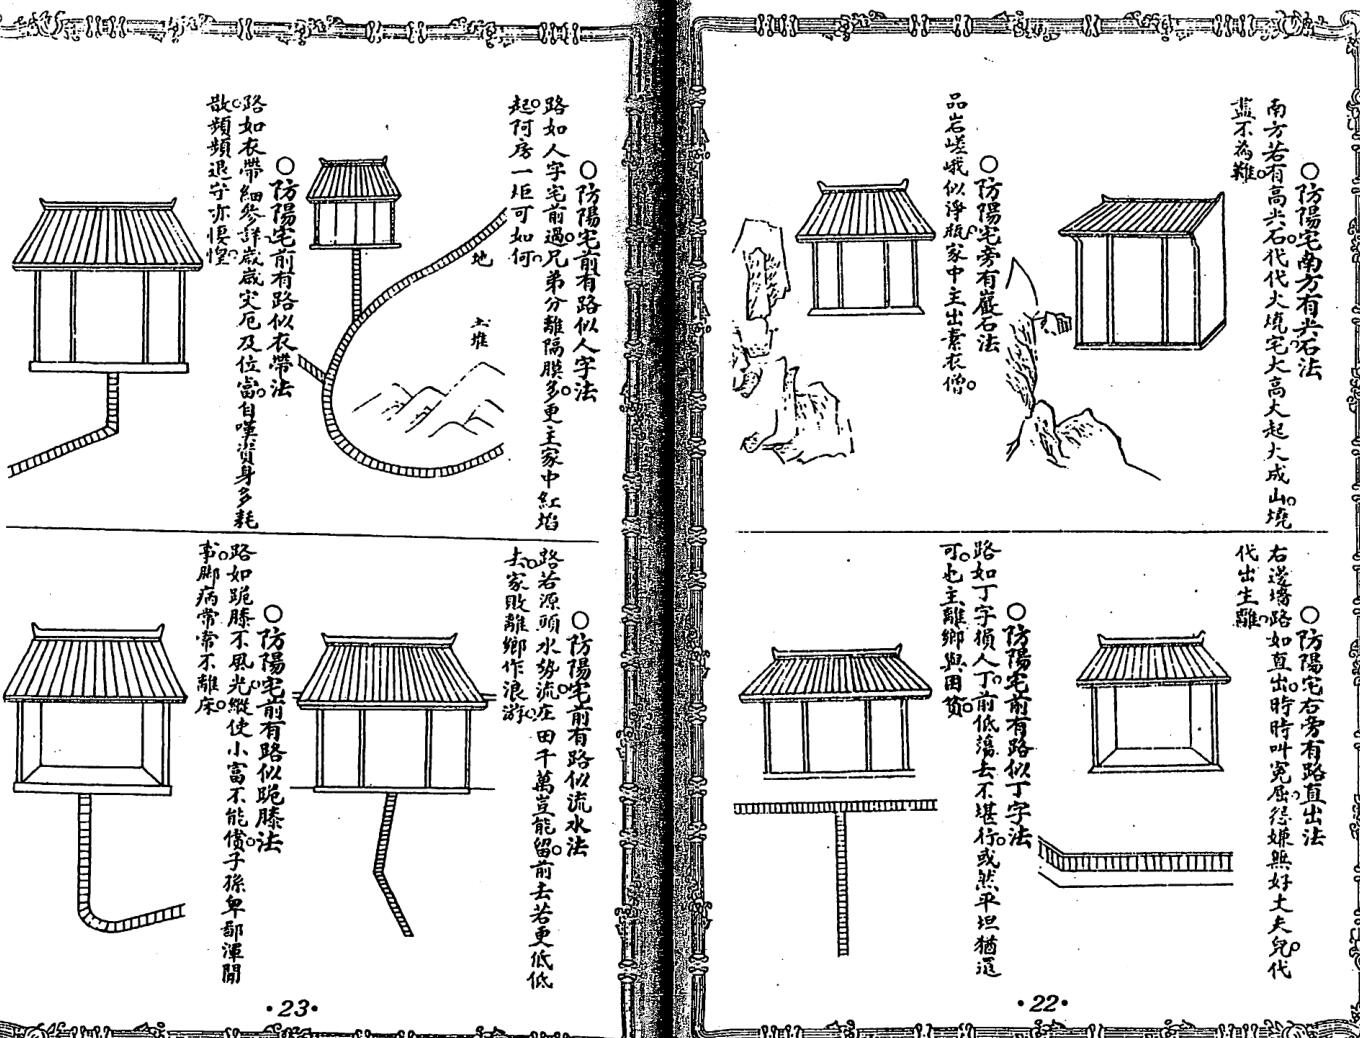 ○防陽宅南方有尖石法
南方若有高尖石。代代火燒宅。火高火起火成山。燒
盡不為難。
○防陽宅旁有巖石法
品岩嵯峨似淨瓶。家中主出素衣僧。
○防陽宅右旁有路直出法
右邊墻路如直出。時時叫冤屈。怨嫌無好丈夫兒。代
代出生離。
○防陽宅前有路似丁字法
路如丁字損人丁。前低蕩去不堪行。或然平坦猶還
可。也主離鄉與困貧。
22
○防陽宅前有路似人字法
路如人字宅前過。兄弟分離隔膜多。更主家中紅焰
起。阿房一炬可如何。
地
土堆
○防陽宅前有路似衣帶法
路如衣帶細參詳。歲歲災厄及位當。自嘆資身多耗
散。頻頻退守亦悽惶。
○防陽宅前有路似流水法
路若源頭水勢流。庄田千萬豈能留。前去若更低低
去。家敗離鄉作浪游。
○防陽宅前有路似跪膝法
路如跪膝不風光。縱使小富不能償。子孫卑鄙渾閒
事。脚病常常不離床。
23